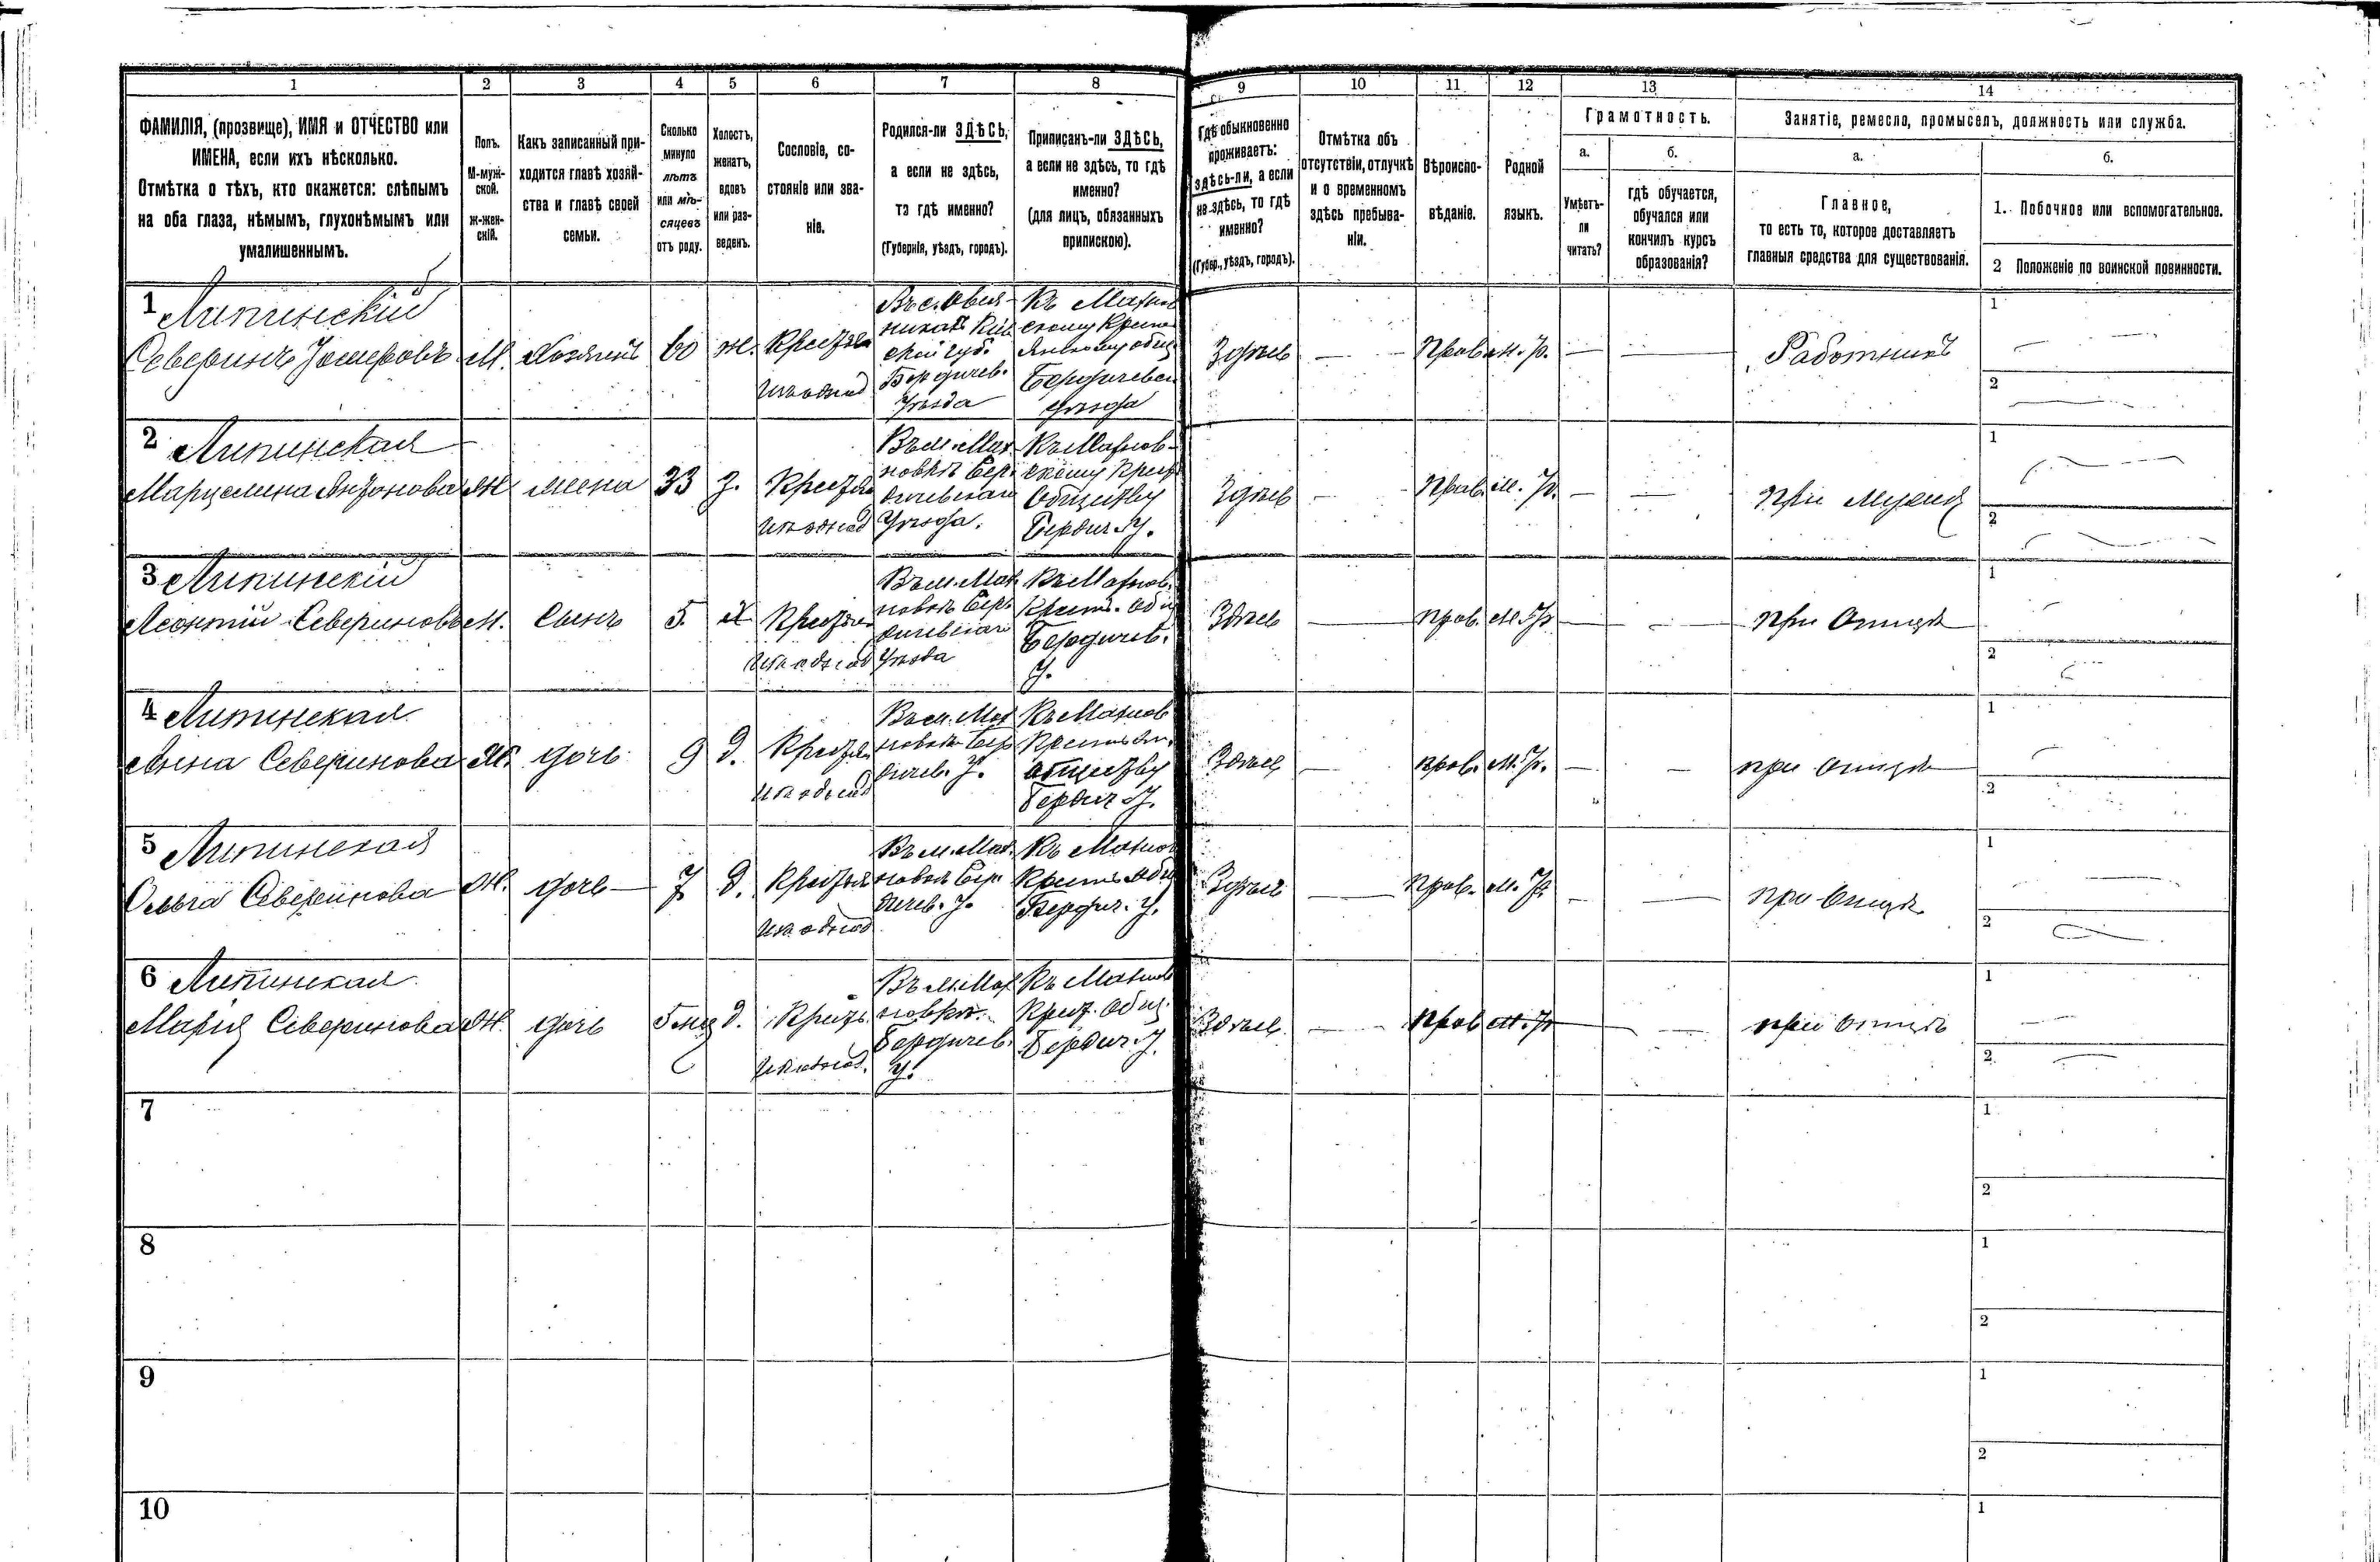 1 2 3 4 5 6 7 8 9 10 11 12 13 14
ФАМИЛІЯ, (прозвище), ИМЯ и ОТЧЕСТВО или
ИМЕНА, если ихъ нѣсколько.
Отмѣтка о тѣхъ, кто окажется: слѣпымъ
на оба глаза, нѣмымъ, глухонѣмымъ или
умалишеннымъ.
Полъ.
М-муж-
ской.
ж-жен-
скій.
Какъ записанный при-
ходится главѣ хозяй-
ства и главѣ своей
семьи.
Сколько
минуло
лѣтъ
или мѣ-
сяцевъ
отъ роду.
Холостъ,
женатъ,
вдовъ
или раз-
веденъ.
Сословіе, со-
стояніе или зва-
ніе.
Родился-ли ЗДѢСЬ,
а если не здѣсь,
то гдѣ именно?
(Губернія, уѣздъ, городъ).
Приписанъ-ли ЗДѢСЬ,
а если не здѣсь, то гдѣ
именно?
(для лицъ, обязанныхъ
припискою).
Гдѣ обыкновенно
проживаетъ:
здѣсь-ли, а если
не здѣсь, то гдѣ
именно?
(Губер., уѣздъ, городъ).
Отмѣтка объ
отсутствіи, отлучкѣ
и о временномъ
здѣсь пребыва-
ніи.
Вѣроиспо-
вѣданіе.
Родной
языкъ.
Грамотность.
а.
Умѣетъ-
ли
читать?
б.
гдѣ обучается,
обучался или
кончилъ курсъ
образованія?
Занятіе, ремесло, промыселъ, должность или служба.
а.
Главное,
то есть то, которое доставляетъ
главныя средства для существованія.
б.
1. Побочное или вспомогательное.
2 Положеніе по воинской повинности.
1 Липинскій
Северинъ
М. Хозяинъ 60 ж.
Бердичев.
уѣзда
Къ
Бердичевск
уѣзда
Здѣсь — Прав. м. р. — — Работникъ
1
2
2 Липинская
Марцелина Антонова ж жена 33 з.
Въ м. Мах
новкѣ Бер
дичевскаго
уѣзда.
Къ Махнов
скому Крест
Обществу
Бердич. У.
Здѣсь — Прав. м. р. — — При мужѣ
1
2
3 Липинскій
Леонтій Севериновъ м. Сынъ 5. х
Въ м. Мах
новкѣ Бер
дичевскаго
уѣзда
Къ Махнов.
Крест. Общ
Бердичев.
У.
Здѣсь — прав. м. р. — — при Отцѣ
1
2
4 Липинская
Анна Северинова ж. дочь 9 д.
Въ м. Мах
новкѣ Бер
дичев. У.
Къ Махнов
Крестьян.
обществу
Бердич. У.
Здѣсь — прав. м. р. — — при отцѣ
1
2
5 Липинская
Ольга Северинова ж. дочь — 7 д.
Въ м. Мах.
новкѣ Бер
дичев. У.
Къ Махнов
Крест. общ
Бердич. У.
Здѣсь — Прав. м. р. — — при Отцѣ
1
2
6 Липинская
Марія Северинова ж. дочь 5 мц д.
Въ м. Мах
новкѣ.
Бердичев.
У.
Къ Махнов
Крест. Общ.
Бердич. У.
Здѣсь — Прав м. р. — — при отцѣ
1
2
7
1
2
8
1
2
9
1
2
10
1